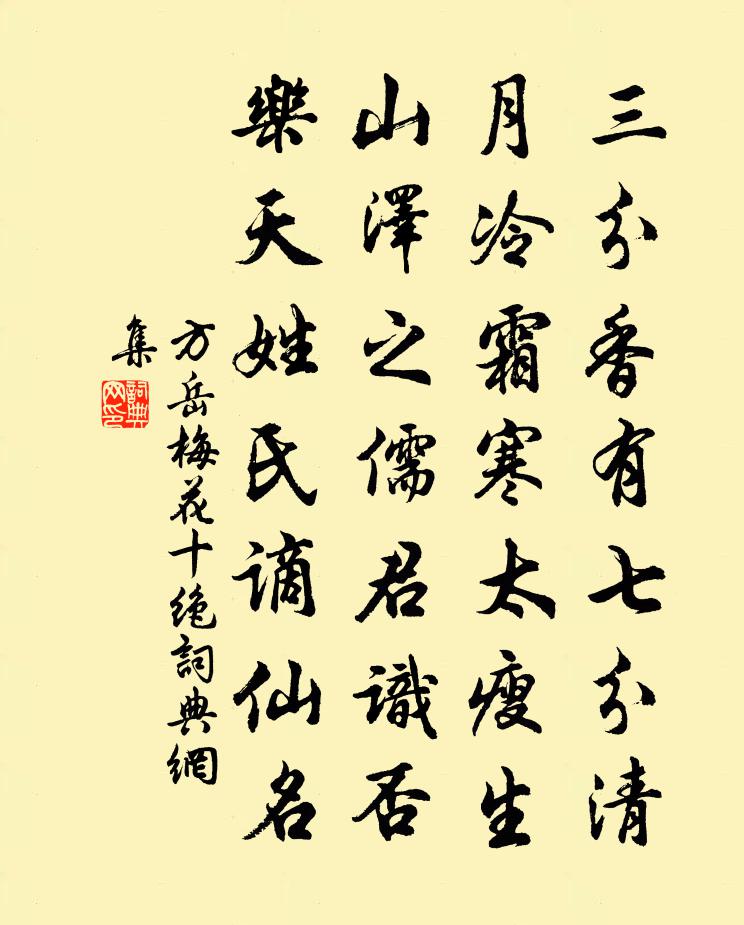 三分香有七分清
月冷霜寒太瘦生
山澤之儒君識否
樂天姓氏謫仙名
方岳梅花十绝詞典網
集
詞典
网印